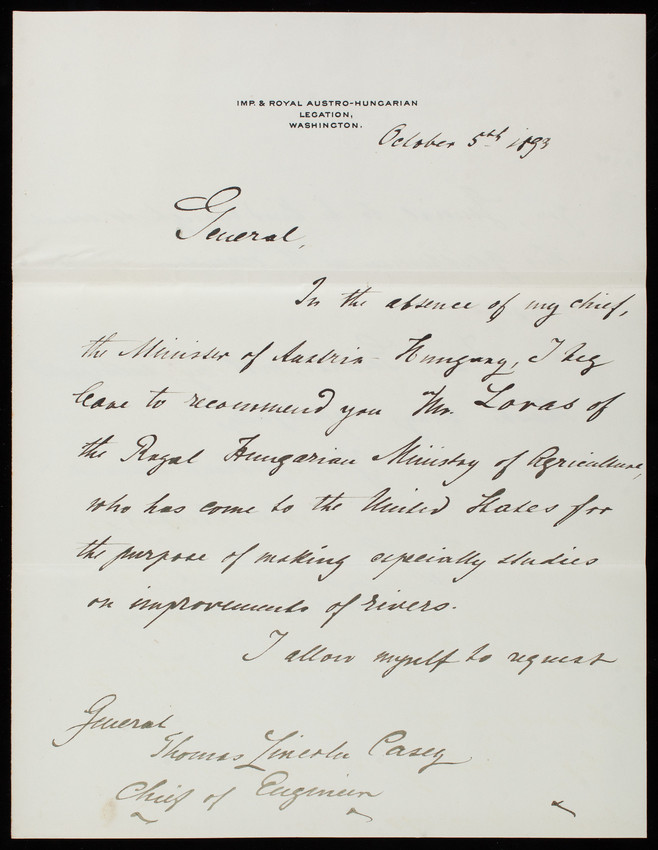 IMP. & ROYAL AUSTRO-HUNGARIAN
LEGATION,
WASHINGTON.
October 5th 1893
General,
In the absence of my chief,
the Minister of Austria-Hungary, I beg
leave to recommend you Mr. Lovas of
the Royal Hungarian Ministry of Agriculture,
who has come to the United States for
the purpose of making especially studies
on improvements of rivers.
I allow myself to request
General
Thomas Lincoln Casey
Chief of Engineer